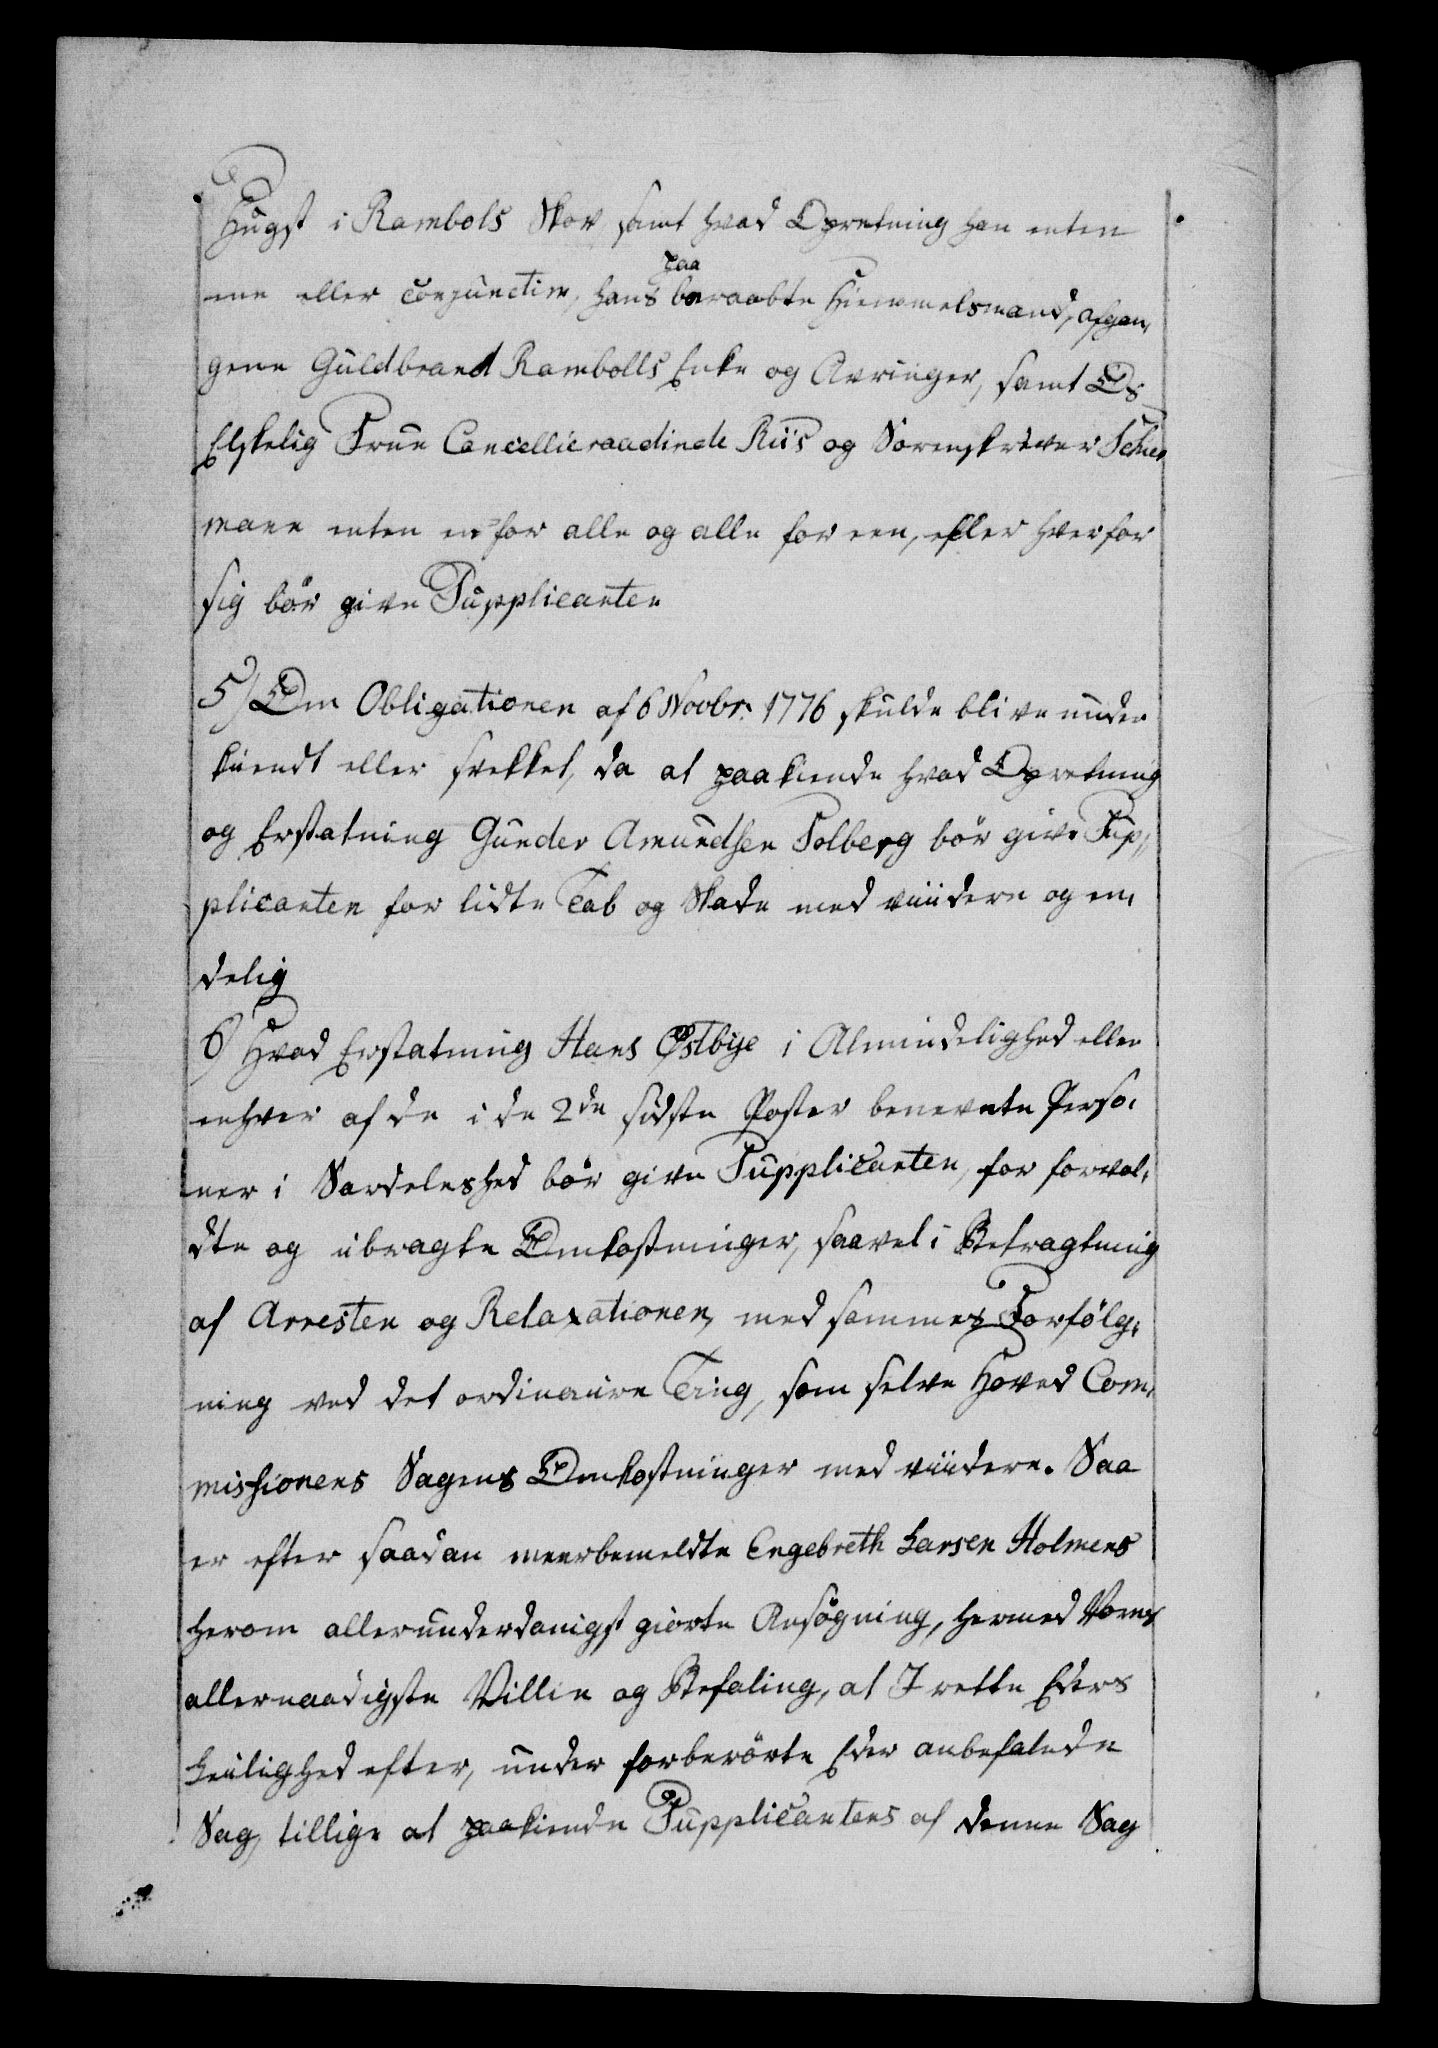 Hugst i Rambøls Skov, samt hvad Opretning han enten
ene eller conjunctim, hans paa beraabte Hiemmelsmand, afgan,
gene Guldbrand Rambølls Enke og Arvinger, samt Os
Elskelig Frue Cancellieraadinde Riis og Sorenskriver Schu,
mann enten en for alle og alle for een, eller hver for
sig bör give Supplicanten
5) Om Obligationen af 6 Novbr. 1776 skulde blive under
kiendt eller svekket, da at paakiende hvad Opretning
og Erstatning Gunder Amundsen Solberg bör give Sup,,
plicanten for lidte Tab og Skade med viidere og en,
delig
6) Hvad Erstatning Hans Østbye i Almindelighed eller
enhver af de i de 2de sidste Poster benevnte Perso,
ner i Særdeleshed bör give Supplicanten, for forvol,
dte og ibragte Omkostninger, saavel i Betragtning
af Arresten og Relaxationen, med sammes Forfölg,
ning ved det ordinaire Ting, som selve Hoved Com,
missionens Sagens Omkostninger med viidere. Saa
er efter saadan meerbemeldte Engebreth Larsen Holmens
herom allerunderdanigst giorte Ansögning, hermed Vores
allernaadigste Villie og Befaling, at I rette Eders
Leilighed efter, under forberörte Eder anbefalede
Sag, tillige at paakiende Supplicantens af denne Sag